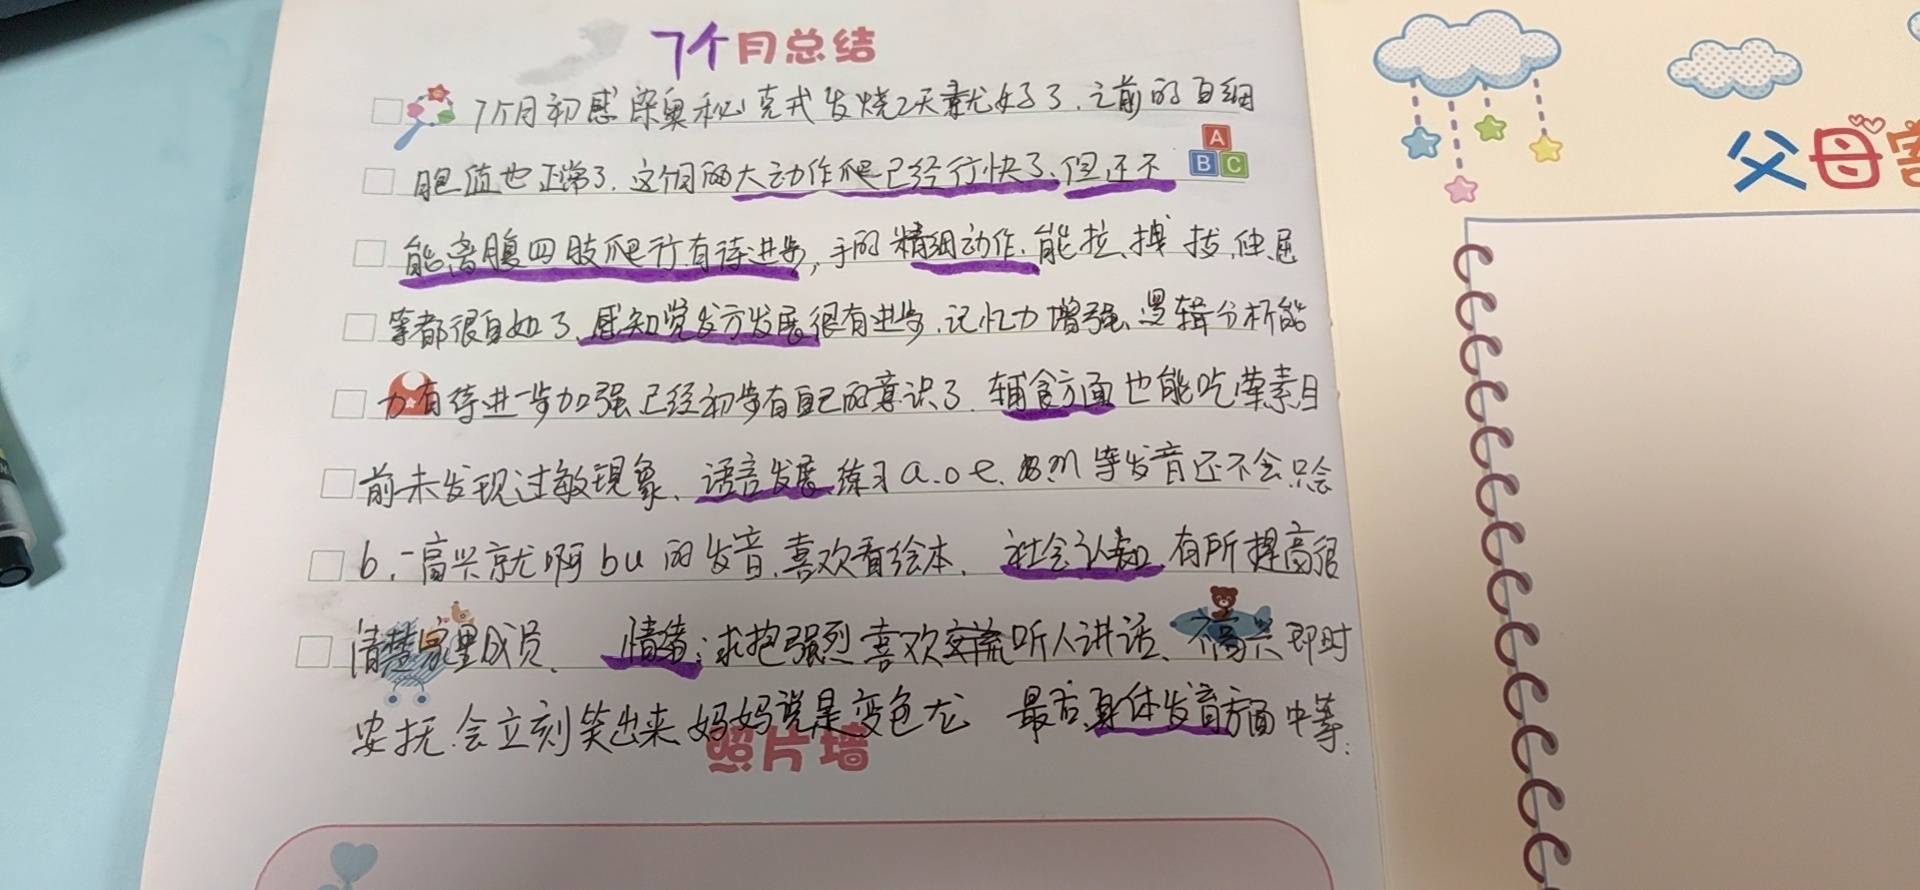 7个月总结
7个月初感染奥秘克戎发烧2天就好了.之前的白细
胞值也正常了.这个月的大动作爬已经行快了、但还不
能离腹四肢爬行有待进步,手的精细动作.能拉、拽 拔、伸.屈
等都很自如了、感知觉发方发展很有进步、记忆力增强、逻辑分析能
力有待进一步加强已经初步有自己的意识了.辅食方面也能吃荤素目
前未发现过敏现象、语言发展练习a.o e. m等发音还不会只会
b.一高兴就啊bu的发音.喜欢看绘本.社会认知有所提高很
清楚家里成员、情绪:求抱强烈喜欢交流听人讲话、不高兴即时
安抚.会立刻笑出来.妈妈说是变色龙 最后身体发育方面中等.
照片墙
A
B C
父母